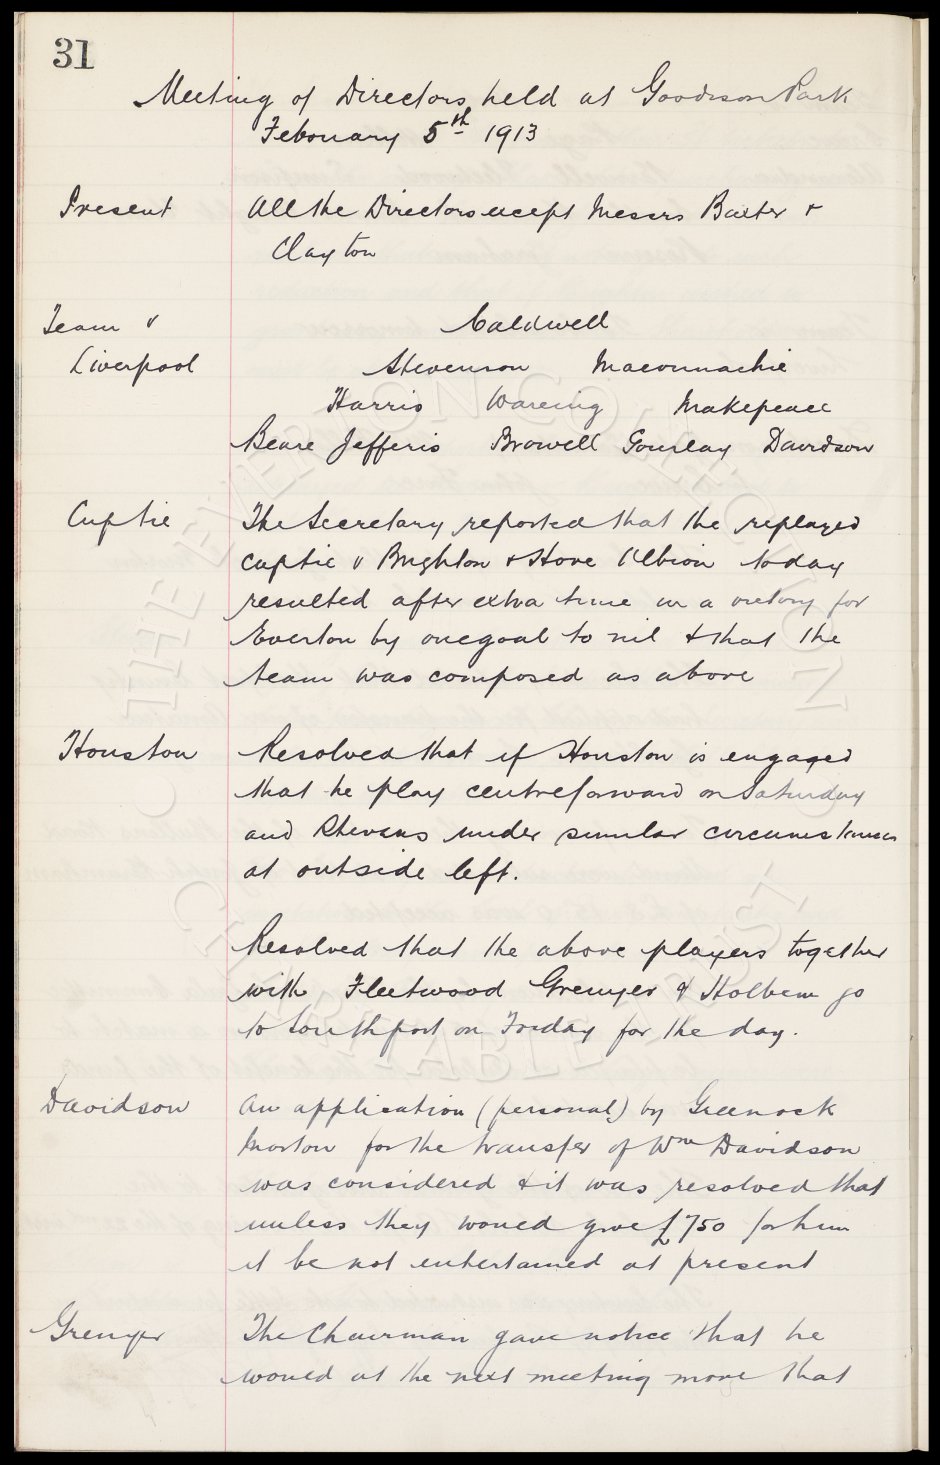 31
Meeting of Directors held at Goodison Park
February 5th 1913
Present All the Directors except Messrs Baxter +
Clayton
Team v Caldwell
Liverpool Stevenson Maconnachie
Harris Wareing Makepeace
Beare Jefferis Browell Gourlay Davidson
Cup tie The Secretary reported that the replayed
cuptie v Brighton + Hove Albion today
resulted after extra time in a victory for
Everton by one goal to nil + that the
team was composed as above
Houston Resolved that if Houston is engaged
that he play centreforward on Saturday
and Stevens under similar circumstances
at outside left.
Resolved that the above players together
with Fleetwood Grenyer & Holbem go
to Southport on Friday for the day.
Davidson An application (personal) by Greenock
Morton for the transfer of Wm Davidson
was considered + it was resolved that
unless they would give £750 for him
it be not entertained at present
Grenyer The Chairman gave notice that he
would at the next meeting move that
THE EVERTON COLLECTION
CHARITABLE TRUST